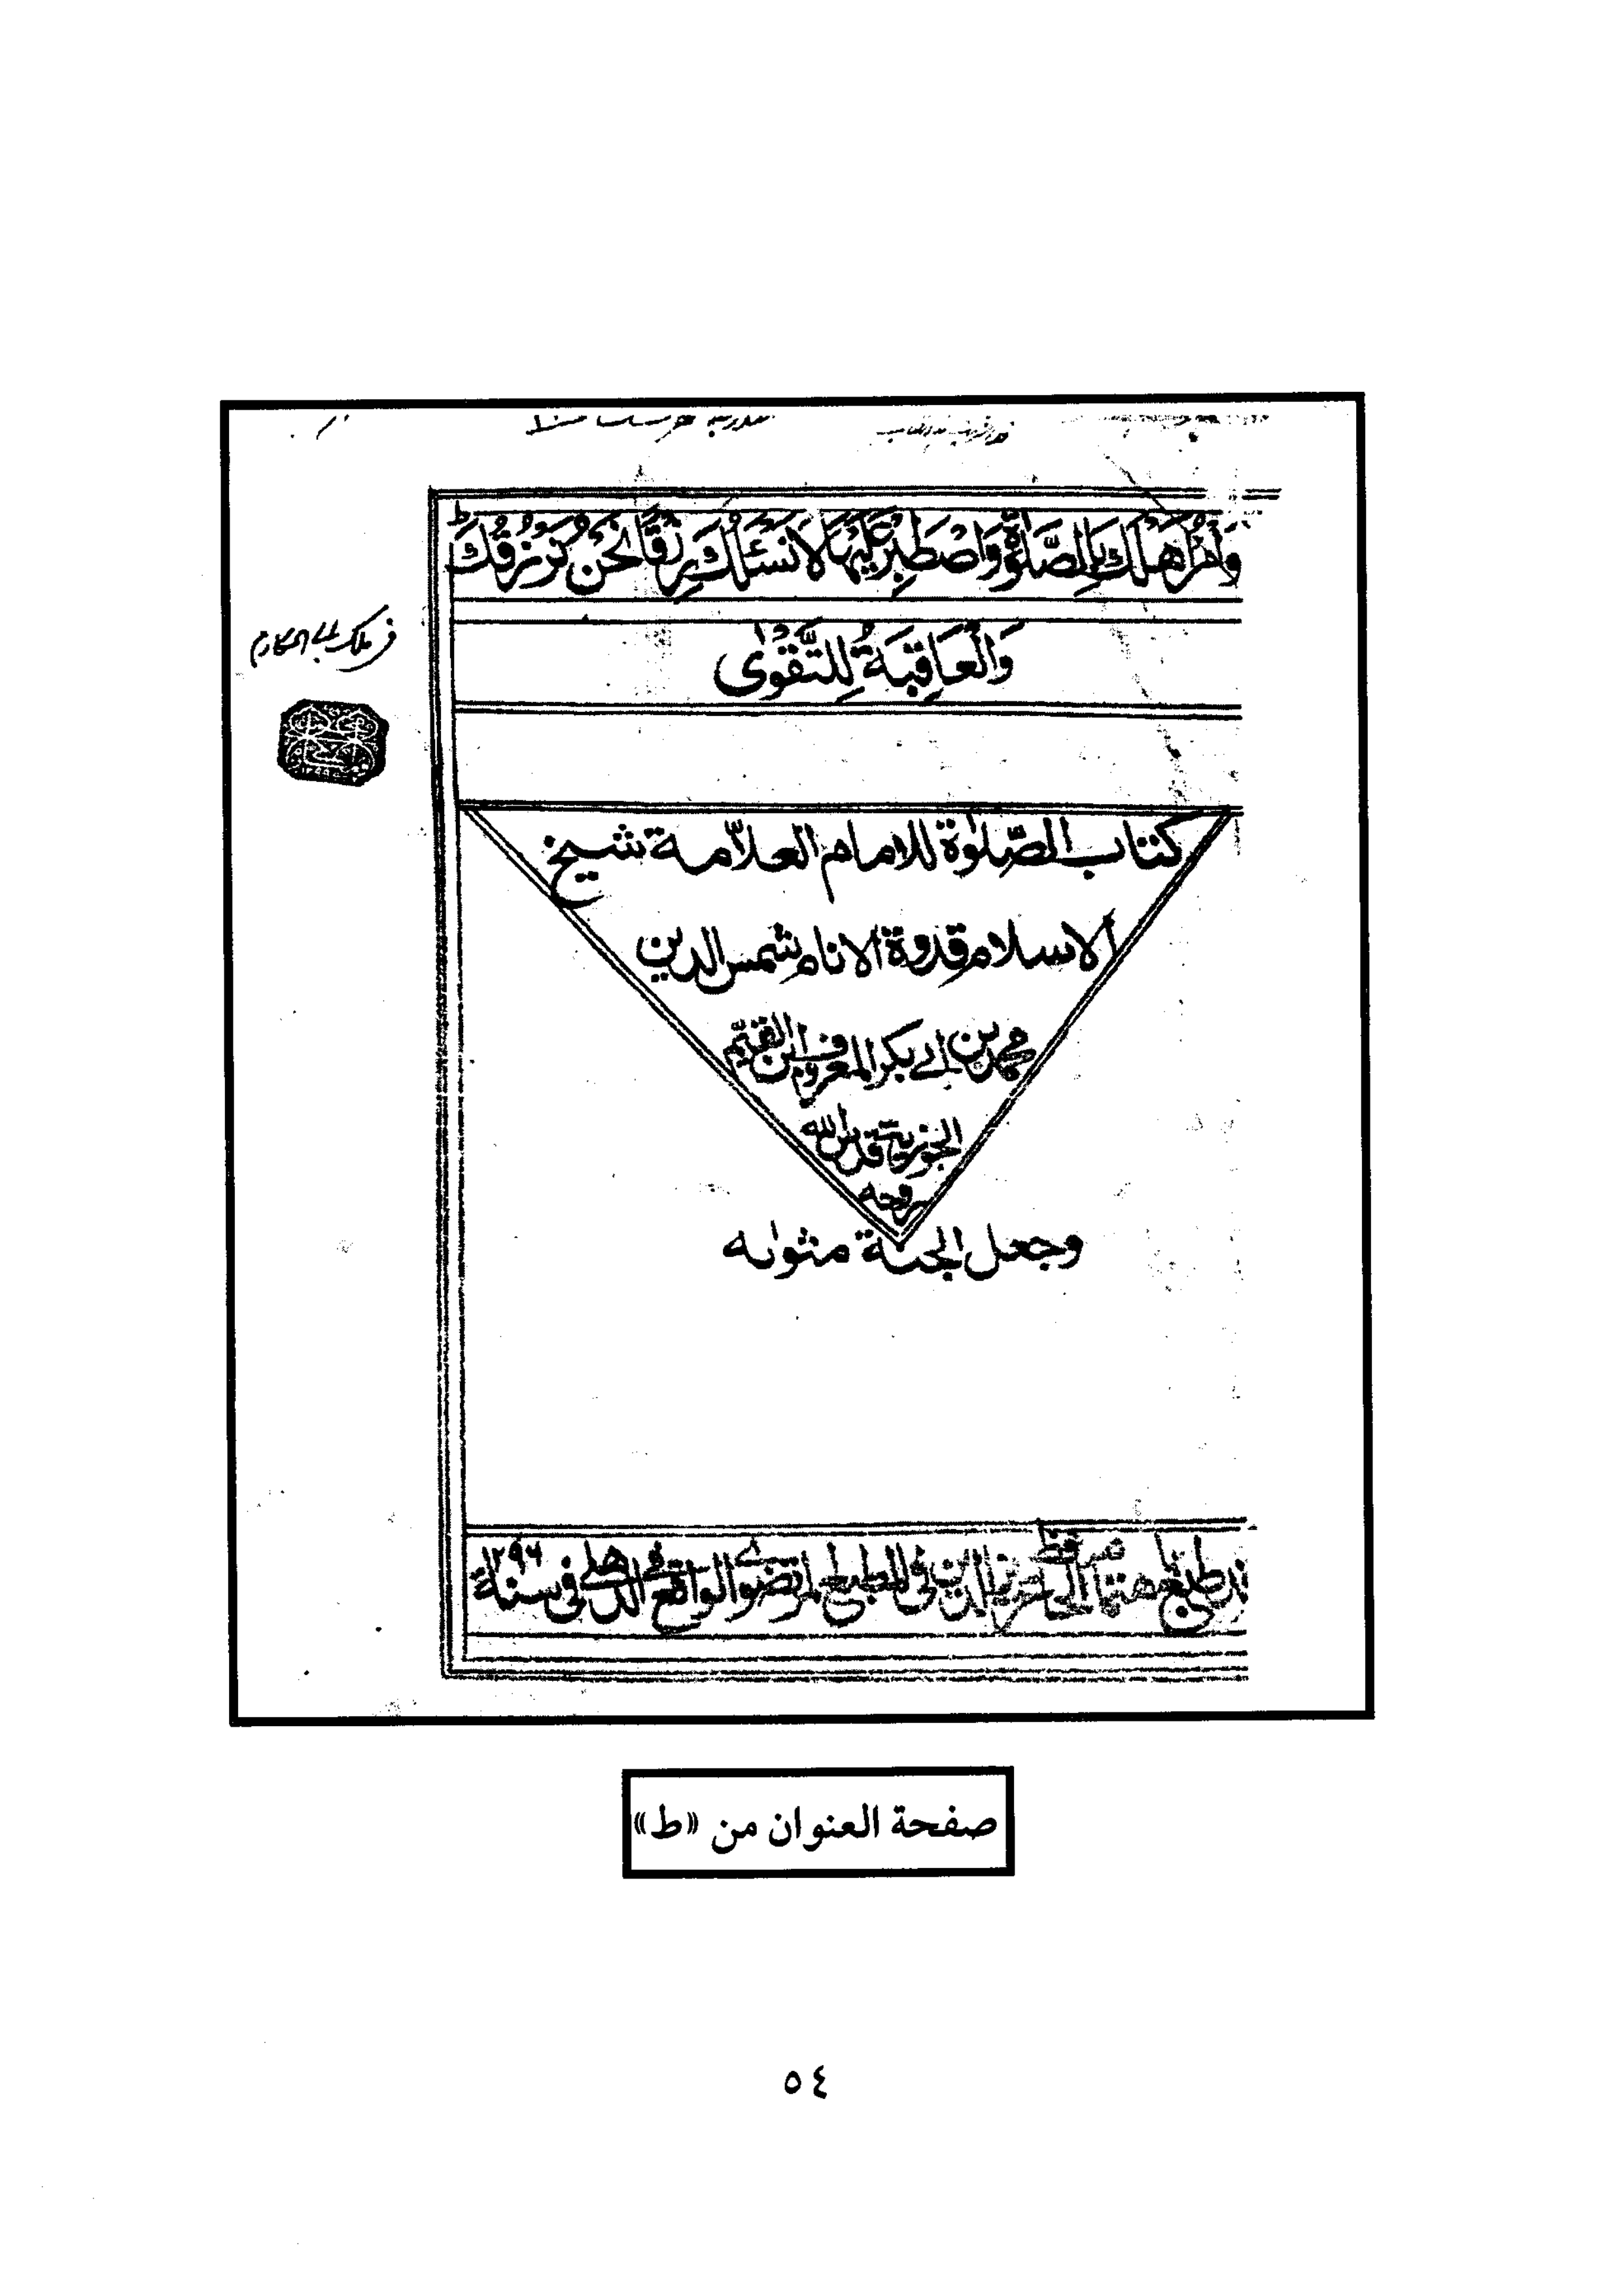 وَأْمُرْ اَهْلَكَ بِالصَّلٰوةِ وَاصْطَبِرْ عَلَيْهَا لَا نَسْئَلُكَ رِزْقًا نَحْنُ نَرْزُقُكَ ط
وَالْعَاقِبَةُ لِلتَّقْوٰى
كتاب الصّلٰوة للامام العلّامة شيخ
الاسلام قدوة الانام شمس الدين
محمد بن ابي بكر المعروف بابن القيّم
الجوزية قدس الله
روحه
وجعل الجنة مثواه
الدين في المطبع المرتضوي الواقع في الدهلي في سنة ١٢٩٦
صفحة العنوان من «ط»
٥٤